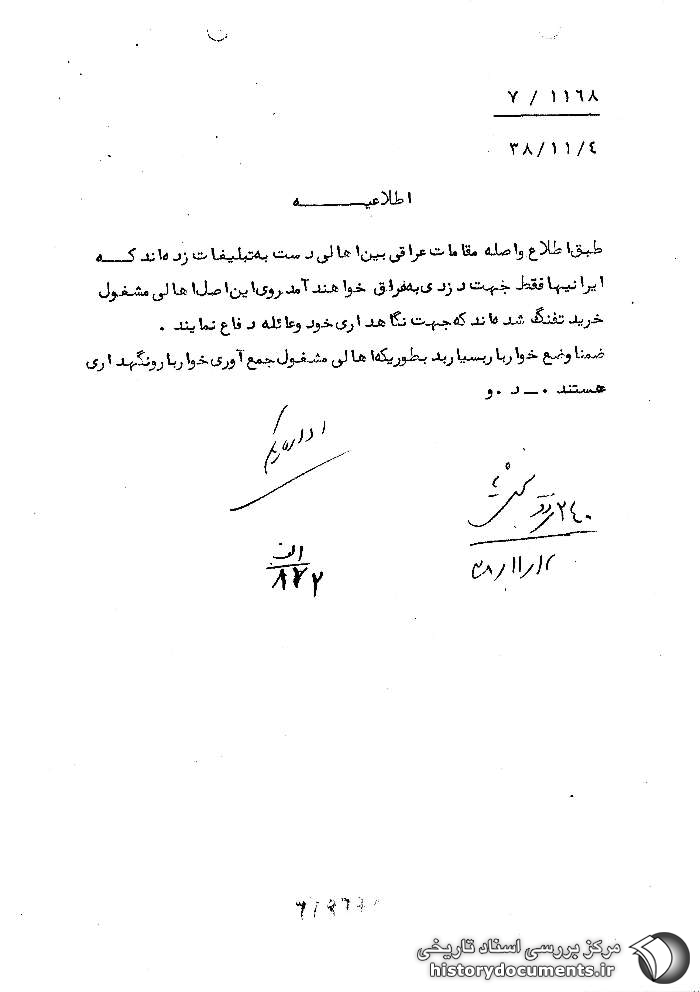 ۷ / ۱۱٦۸
۳۸/۱۱/٤
اطلاعیه
طبق اطلاع واصله مقامات عراقی بین اهالی دست به تبلیغات زده اند که
ایرانیها فقط جهت دزدی به عراق خواهند آمد روی این اصل اهالی مشغول
خرید تفنگ شده اند که جهت نگاهداری خود وعائله دفاع نمایند .
ضمنا وضع خواربار بسیار بد بطوریکه اهالی مشغول جمع آوری خواربار و نگهداری
هستند ۰ــ د ۰و
اداره یکم
بخش
۲٤۰
۳۸/۱۱/۱۲
الف
۸۷۲
مرکز بررسی اسناد تاریخی
historydocuments.ir